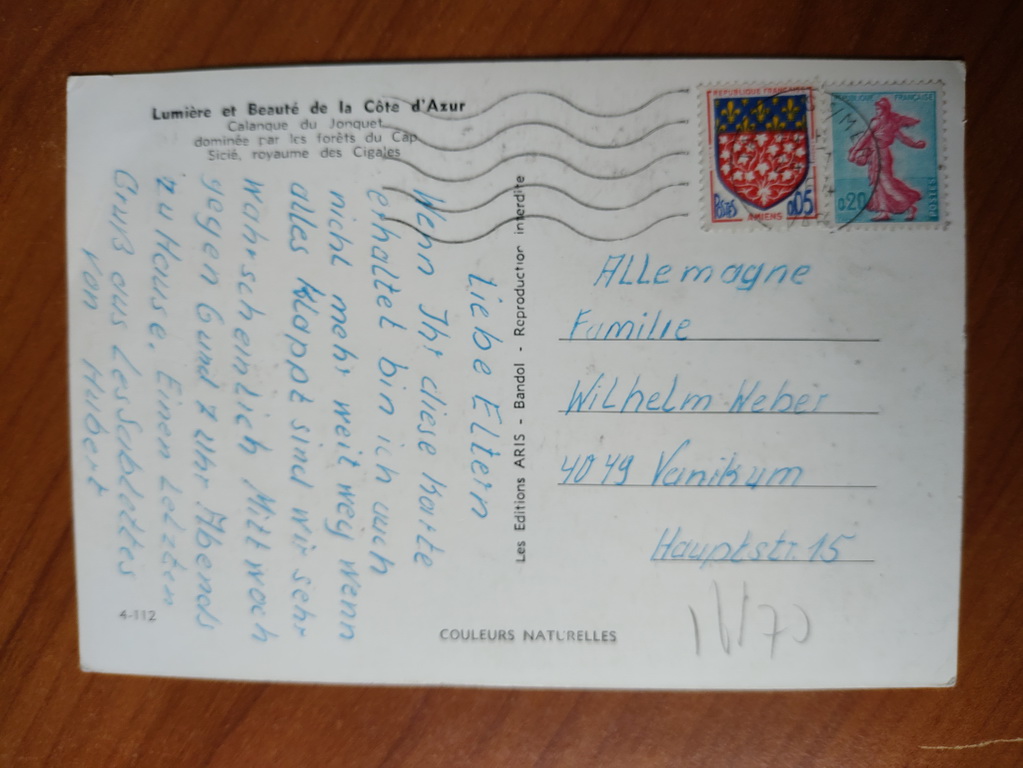 Lumière et Beauté de la Côte d'Azur
Calanque du Jonquet
dominée par les forêts du Cap
Sicié, royaume des Cigales
REPUBLIQUE FRANÇAISE
POSTES
0,05
AMIENS
REPUBLIQUE FRANÇAISE
0,20
POSTES
Liebe Eltern
Wenn Ihr diese Karte
erhaltet bin ich auch
nicht mehr weit weg wenn
alles klappt sind wir sehr
wahrscheinlich Mittwoch
gegen 6 und 7 uhr Abends
zu Hause. Einen Letzten
Gruß aus LesSablettes
von Hubert
Les Editions ARIS - Bandol - Reproduction interdite
ALLemagne
Familie
Wilhelm Weber
4049 Vanikum
Hauptstr. 15
4-112
COULEURS NATURELLES